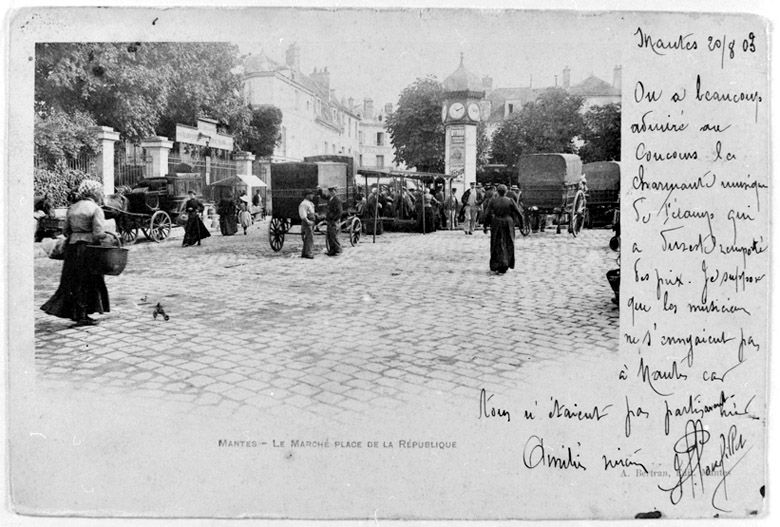 Mantes 20/8 03
On a beaucoup
admiré au
Concours la
charmante musique
d'Etamp qui
a remporté
des prix. Je suppose
que les musiciens
ne s'ennyaient pas
à Mantes car
Tous n'étaient pas partis hier
Amitiés
MANTES – LE MARCHÉ PLACE DE LA RÉPUBLIQUE
A. Bertran, Edit. Mantes